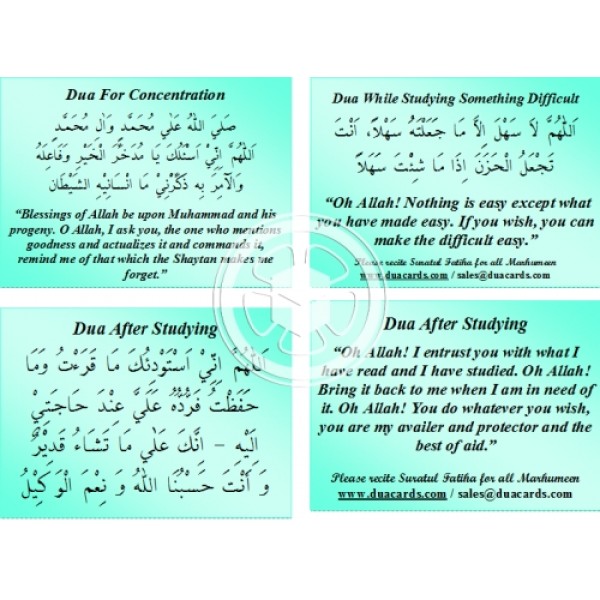 Dua For Concentration
صَلَيَ اللهُ عَلَي مُحَمَّدٍ وَالِ مُحَمَّدٍ
اَللهُمَّ اِنِّيْ اَسْئَلُكَ يَا مُدَخِّرَ الْخَيْرِ وَفَاعِلَهُ
وَالْآمِرَ بِهِ ذَكِّرْنِيْ مَا اَنْسَانِيْهِ الشَّيْطَان
“Blessings of Allah be upon Muhammad and his
progeny. O Allah, I ask you, the one who mentions
goodness and actualizes it and commands it,
remind me of that which the Shaytan makes me
forget.”
Dua While Studying Something Difficult
اَللّٰهُمَّ لاَ سَهْلَ اِلاَّ مَا جَعَلْتَهُ سَهْلاً، اَنْتَ
تَجْعَلُ الْحَزَنَ اِذَا مَا شِئْتَ سَهَلاً
“Oh Allah! Nothing is easy except what
you have made easy. If you wish, you can
make the difficult easy.”
Please recite Suratul Fatiha for all Marhumeen
www.duacards.com / sales@duacards.com
Dua After Studying
اَللهُمَّ اِنِّيْ اَسْتَوْدِئُكَ مَا قَرَءْتُ وَمَا
حَفَظْتُ فَرُدُّهُ عَلَيَّ عِنْدَ حَاجَتِيْ
اِلَيْهِ – اِنَّكَ عَلٰي مَا تَشَاءُ قَدِيْرٌ
وَ اَنْتَ حَسْبُنَا اللهُ وَ نِعْمَ الْوَكِيْلُ
Dua After Studying
“Oh Allah! I entrust you with what I
have read and I have studied. Oh Allah!
Bring it back to me when I am in need of
it. Oh Allah! You do whatever you wish,
you are my availer and protector and the
best of aid.”
Please recite Suratul Fatiha for all Marhumeen
www.duacards.com / sales@duacards.com